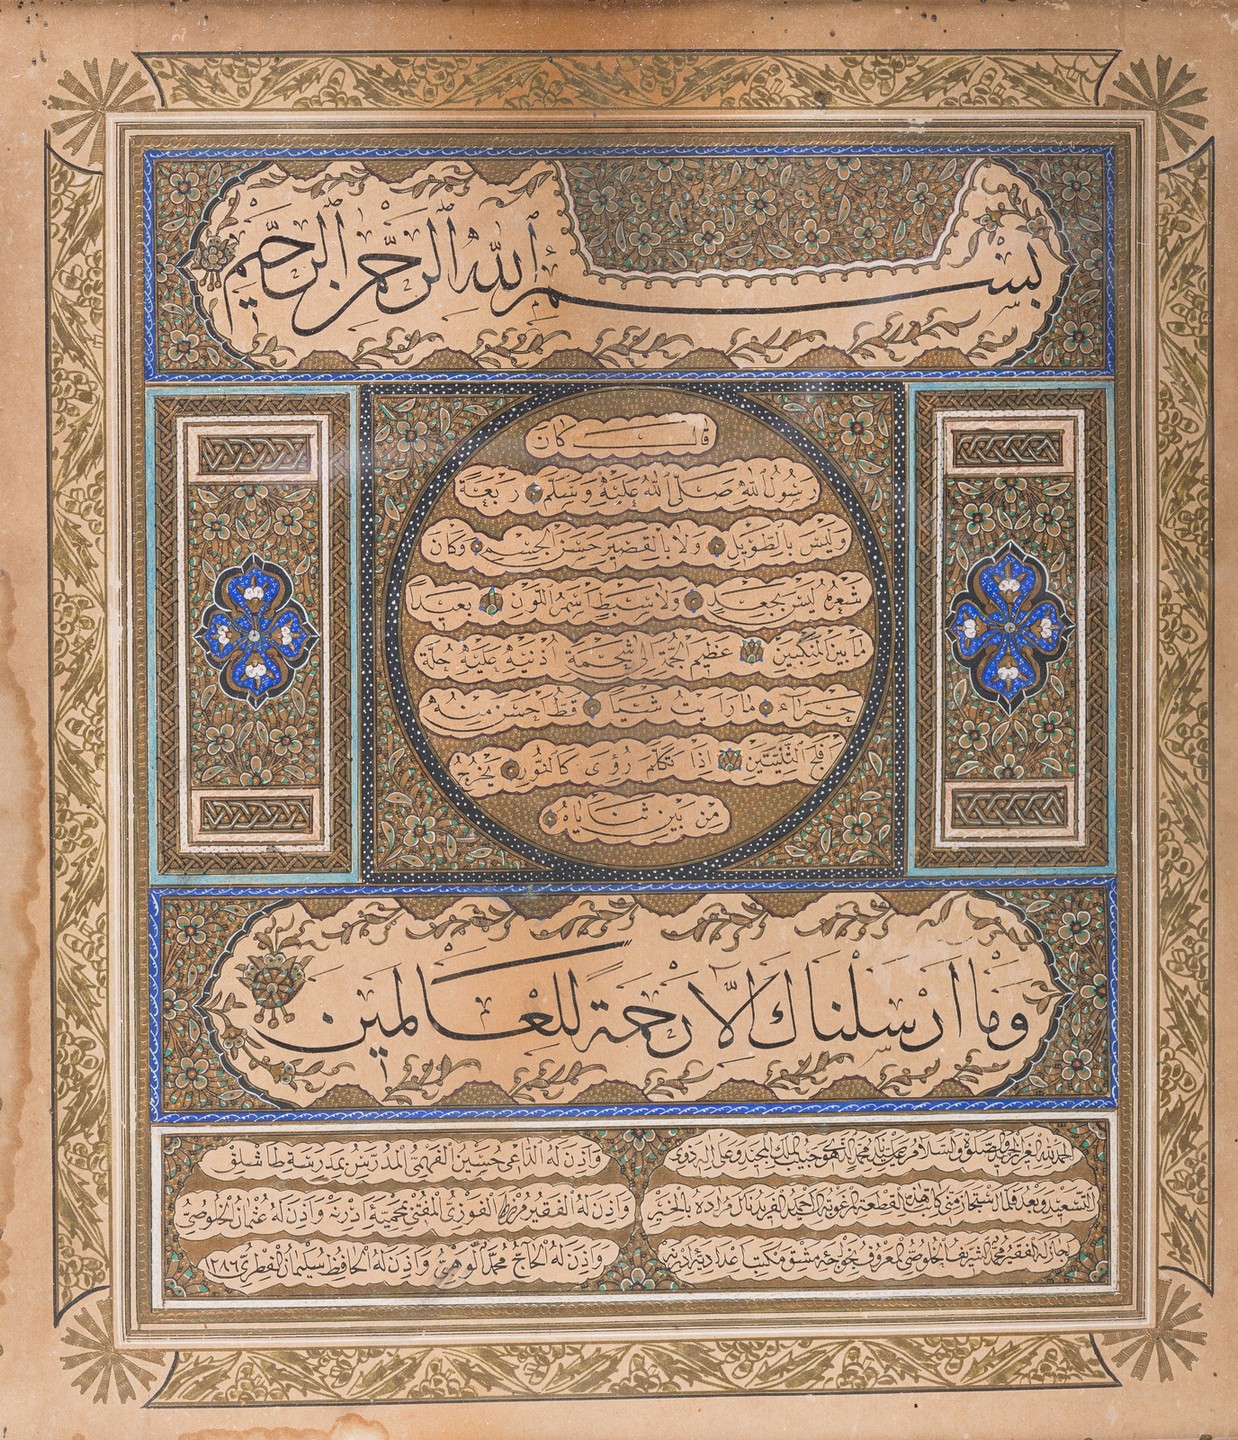 بسم الله الرحمن الرحيم
قال كان
رسول الله صلى الله عليه وسلم ربعة
ليس بالطويل ولا بالقصير حسن الجسم وكان
شعره ليس بجعد ولا سبط اسمر اللون بعيد
ما بين المنكبين عظيم الجمة الى شحمة اذنيه عليه حلة
حمراء ما رايت شيئا قط احسن منه
افلج الثنيتين اذا تكلم رؤى كالنور يخرج
من بين ثناياه
وما ارسلناك الا رحمة للعالمين
الحمد لله العزيز الحميد والصلوة والسلام على محمد الذى هو حبيب الملك المجيد وعلى اله ذوى
التسعيد وبعد فلما استجاز منى كاتب هذه القطعة المرغوبة احمد الفريد نال مراده بالخير
اجاز له الفقير محمد الشريف الخلوصى المعروف بخوجه مشق مكتب اعداديۀ ادرنه
واذن له الداعى حسين الفهمى المدرس بمدرسة طاشلق
واذن له الفقير الفوزى المفتى بمحميۀ ادرنه واذن له عثمان الخلوصى
واذن له الحاج محمد الوهبى واذن له الحافظ سليمان الفطرى ١٢٨٦